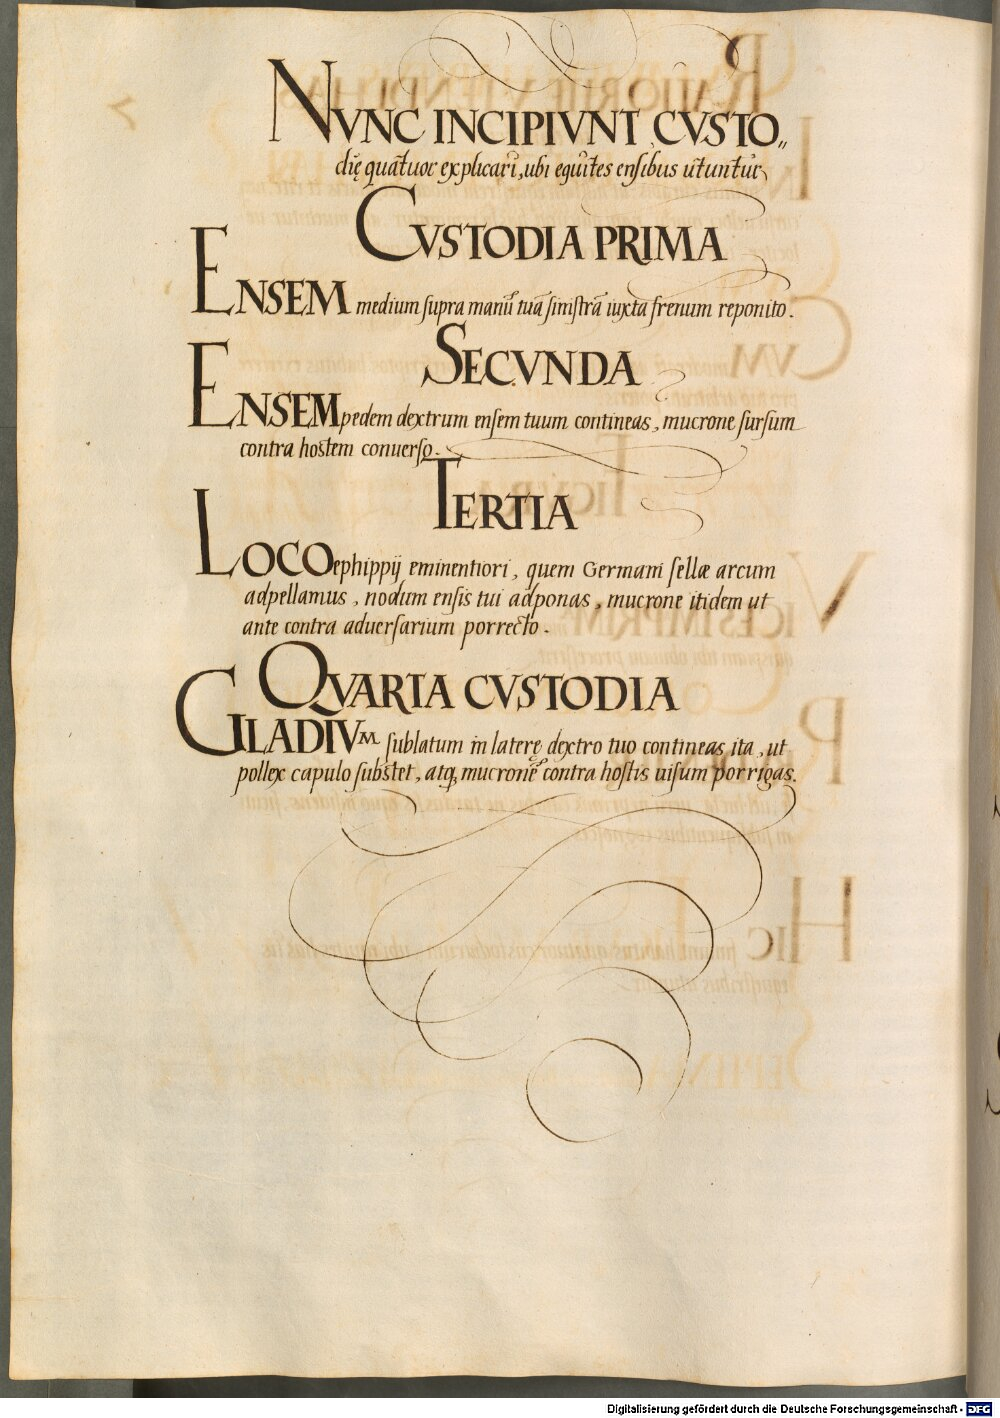 NVNC INCIPIVNT CVSTO„
dię quatuor explicari, ubi equites ensibus utuntur
CVSTODIA PRIMA
ENSEM medium supra manū tuā sinistrā iuxta frenum reponito.
SECVNDA
ENSEM pedem dextrum ensem tuum contineas, mucrone sursum
contra hostem conuerso.
TERTIA
LOCO ephippij eminentiori, quem Germani sellæ arcum
adpellamus, nodum ensis tui adponas, mucrone itidem ut
ante contra aduersarium porrecto.
QVARTA CVSTODIA
GLADIVM sublatum in latere dextro tuo contineas ita, ut
pollex capulo substet, atq; mucronē contra hostis uisum porrigas.
Digitalisierung gefördert durch die Deutsche Forschungsgemeinschaft - DFG